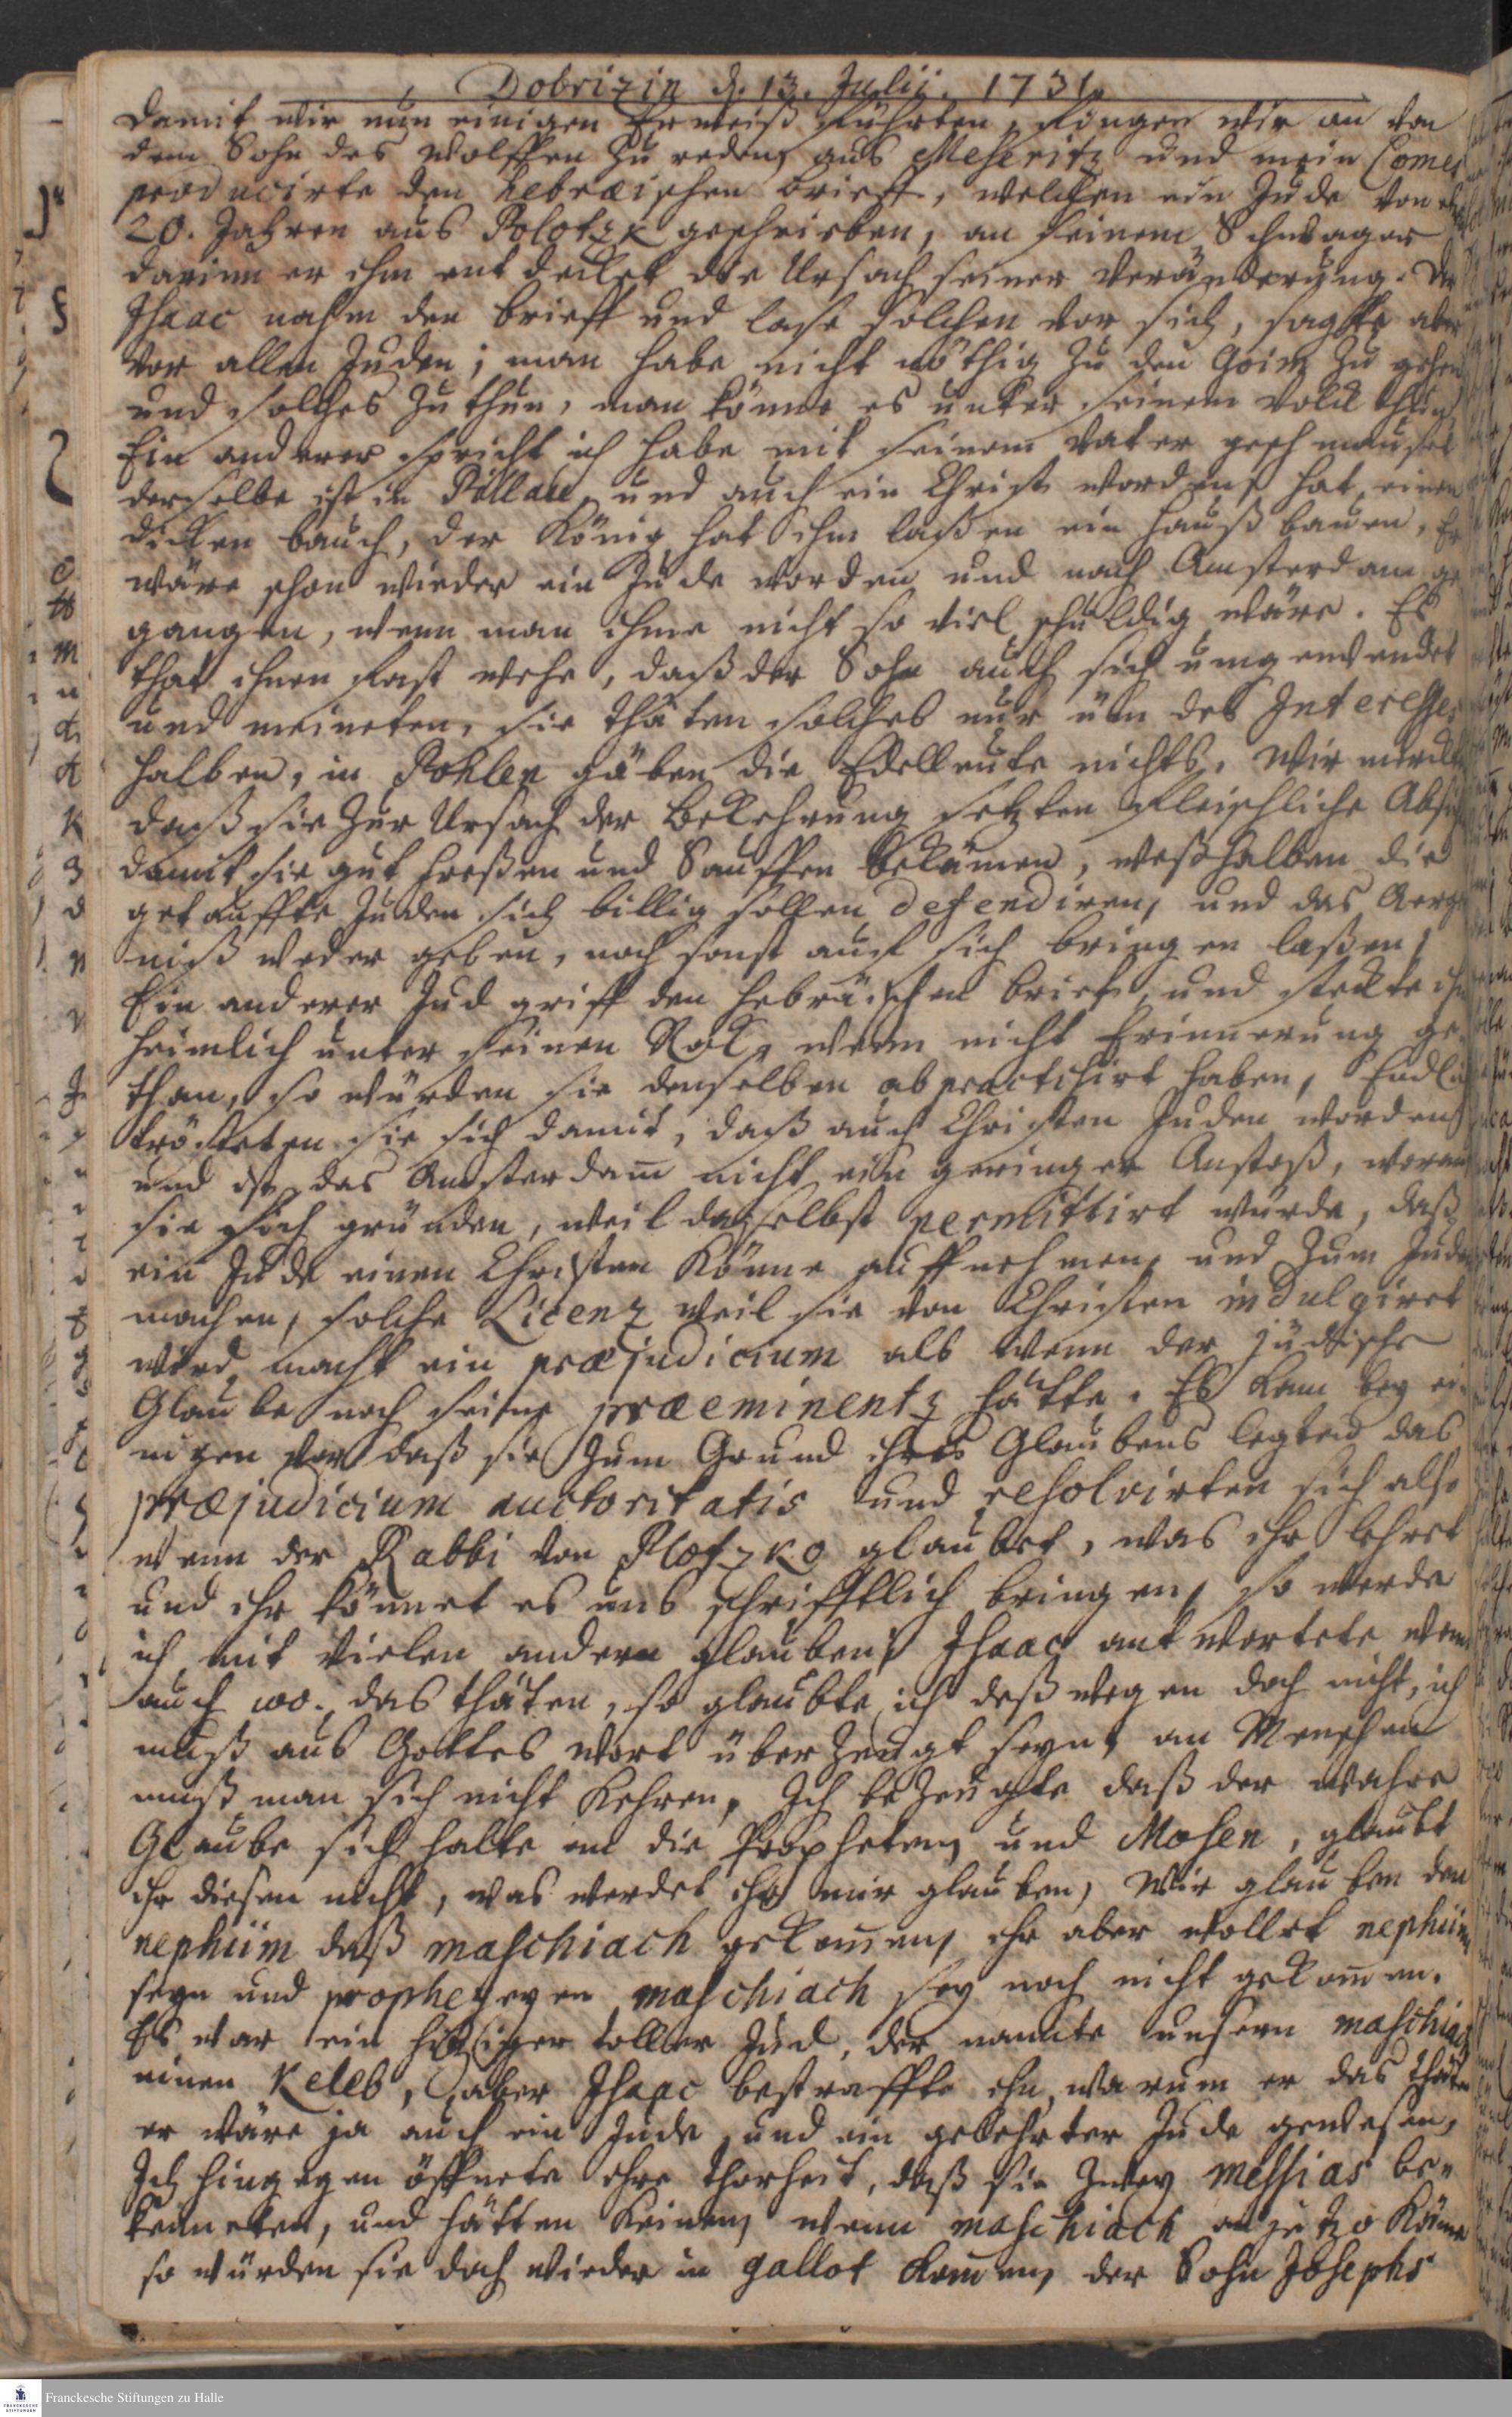 Dobrizin d. 13. Julii. 1731.
damit wir nun einigen Erweiß führten, fingen wir an von
dem Sohn des Wolffen zu reden, aus Meseritz und mein Comes
producirte den hebræischen brieff, welchen ein Jude von
20. Jahren aus Polotzk geschrieben, an seinem Schwager
darinn er ihm entdecket die Ursach seiner Veränderung. Der
Isaac nahm den brieff und lase solchen vor sich, sagte aber
vor allen Juden; man habe nicht nöthig zu den Goim zu gehen
und solches zu thun, man könne es unter seinem Volck thun
Ein anderer spricht ich habe mit seinem Vater geschmauset
derselbe ist in Pillau, und auch ein Christ worden, hat einen
dicken bauch, der König hat ihm laßen ein Hauß bauen, Er
wäre schon wieder ein Jude worden und nach Amsterdam ge
gangen, wenn man ihme nicht so viel schuldig wäre. Es
that ihnen fast wehe, daß der Sohn auch sich umgewendet
und meineten, sie thäten solches nur üm des Interesses
halben, in Pohlen gäben die Edelleute nichts. Wir merckten
daß sie zur Ursach der Bekehrung setzten fleischliche Absicht
damit sie gut freßen und Sauffen bekämen, weßhalben die
getauffte Juden sich billig sollen defendiren, und das Aerger
niß weder geben, noch sonst auf sich bringen laßen,
Ein anderer Jud griff den hebräischen brief, und steckte ihn
heimlich unter seinen Rock, wenn nicht Erinnerung ge
than, so würden sie denselben abpracticirt haben, Endlich
trösteten sie sich damit, daß auch Christen Juden worden
und ist das Amsterdam nicht ein geringer Anstoß, woran
sie sich gründen, weil daselbst permittirt würde, daß
ein Jude einen Christen könne auffnehmen, und zum Juden
machen, solche Licenz weil sie von Christen indulgiret
wird, macht ein præjudicium als wenn der jüdische
Glaube noch seine præeminentz hätte. Es kam bey ei
nigen vor daß sie zum Grund ihres Glaubens legten das
præjudicium auctoritatis und resolvirten sich also
wenn der Rabbi von Plotzko glaubet, was ihr lehret
und ihr könnet es uns schrifftlich bringen, so werde
ich mit vielen andern glauben, Isaac antwortete wenn
auch 100. das thäten, so glaubte ich deßwegen doch nicht, ich
muß aus Gottes wort überzeugt seyn, an Menschen
muß man sich nicht kehren, Ich bezeugte daß der wahre
Glaube sich halte an die Propheten und Mosen, glaubt
ihr diesen nicht, was werdet ihr mir glauben, Wir glauben den
nephiim daß maschiach gekommen, ihr aber wollet nephiim
seyn und propheyeyen maschiach sey noch nicht gekommen.
Es war ein hitziger toller Jud, der nannte unsern maschiach
einen Keleb, aber Isaac bestraffte ihn, warum er das thäte
er wäre ja auch ein Jude, und ein gelehrter Jude gewesen,
Ich hingegen öffnete ihre thorheit, daß sie zwey Messias be-
kenneten, und hätten keinen, wenn maschiach anjetzo käme
so würden sie doch wieder in gallot kommen, der Sohn Josephs
Franckesche Stiftungen zu Halle